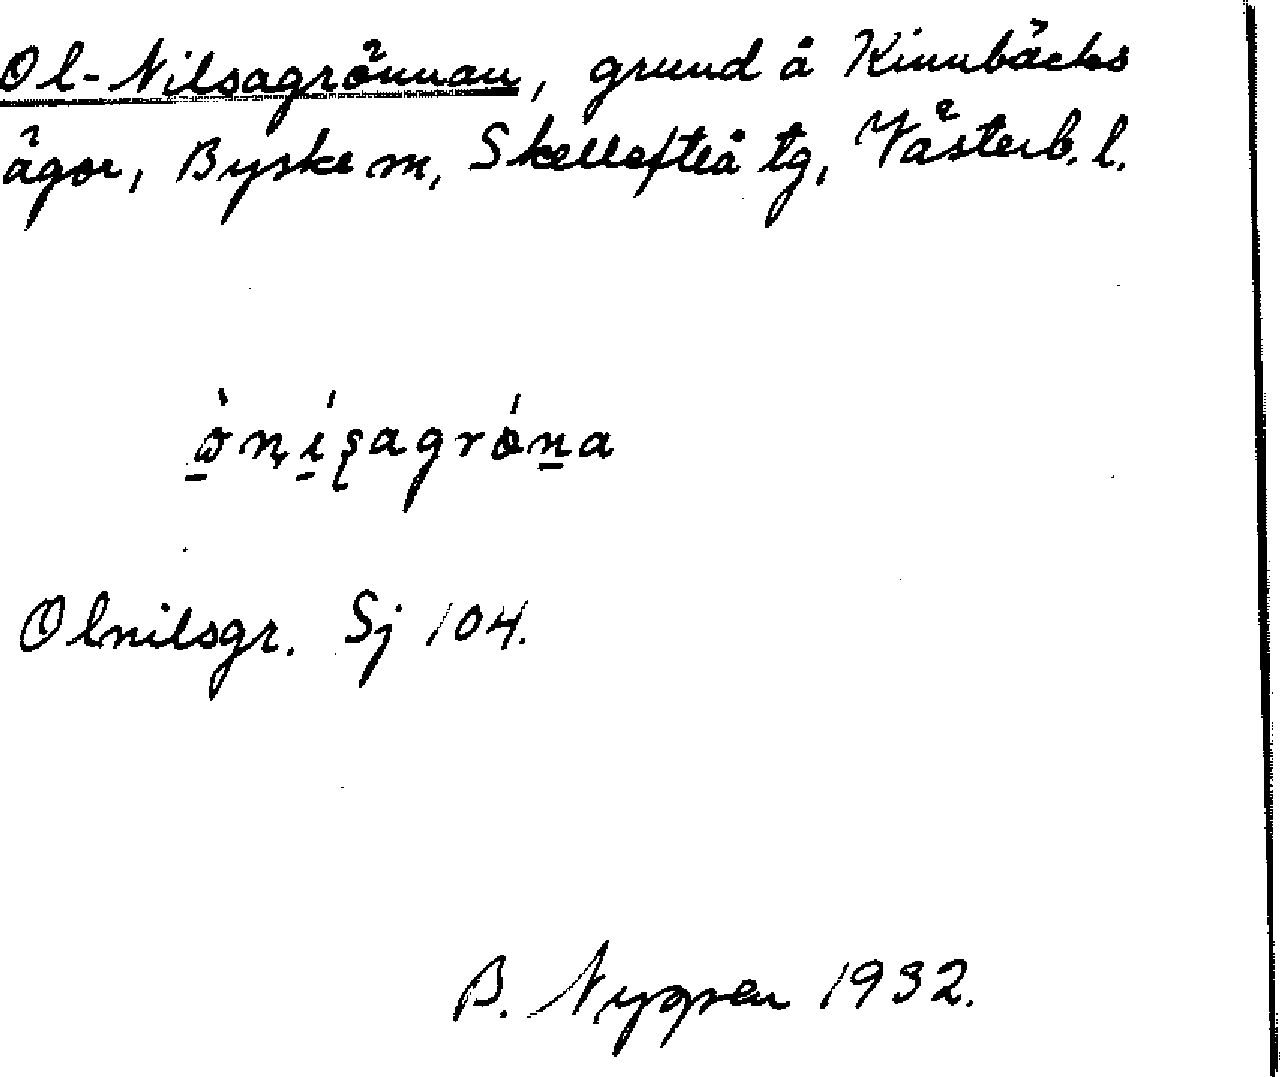 Ol-Nilsagrönnan, grund å Kinnbäcks
ägor, Byske m, Skellefteå tg, Västerb. l.
ò̱ṇí̱ʂagróṉa
Olnilsgr. Sj 104.
B. Nygren 1932.